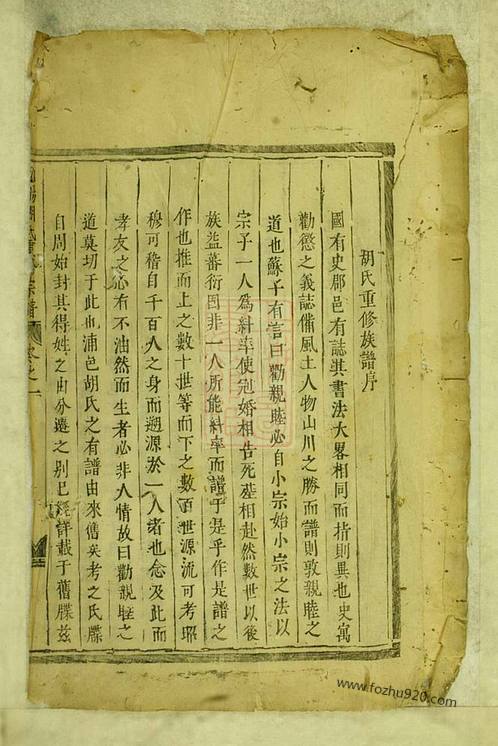 胡氏重修族譜序
國有史郡邑有誌其書法大畧相同而指則異也史寓
勸懲之義誌備風土人物山川之勝而譜則敦親睦之
道也蘇子有言曰勸親睦必自小宗始小宗之法以
宗子一人為糾率使冠婚相告死塟相赴然數世以後
族益蕃衍固非一人所能糾率而譜于是乎作是譜之
作也推而上之數十世等而下之數百世源流可考昭
穆可稽自千百人之身而遡源於一人諸也念及此而
孝友之心有不油然而生者必非人情故曰勸親睦之
道莫切于此也浦邑胡氏之有譜由來舊矣考之氏牒
自周始封其得姓之由分遷之别已詳載于舊牒茲
宗譜
卷之一
www.fozhu920.com